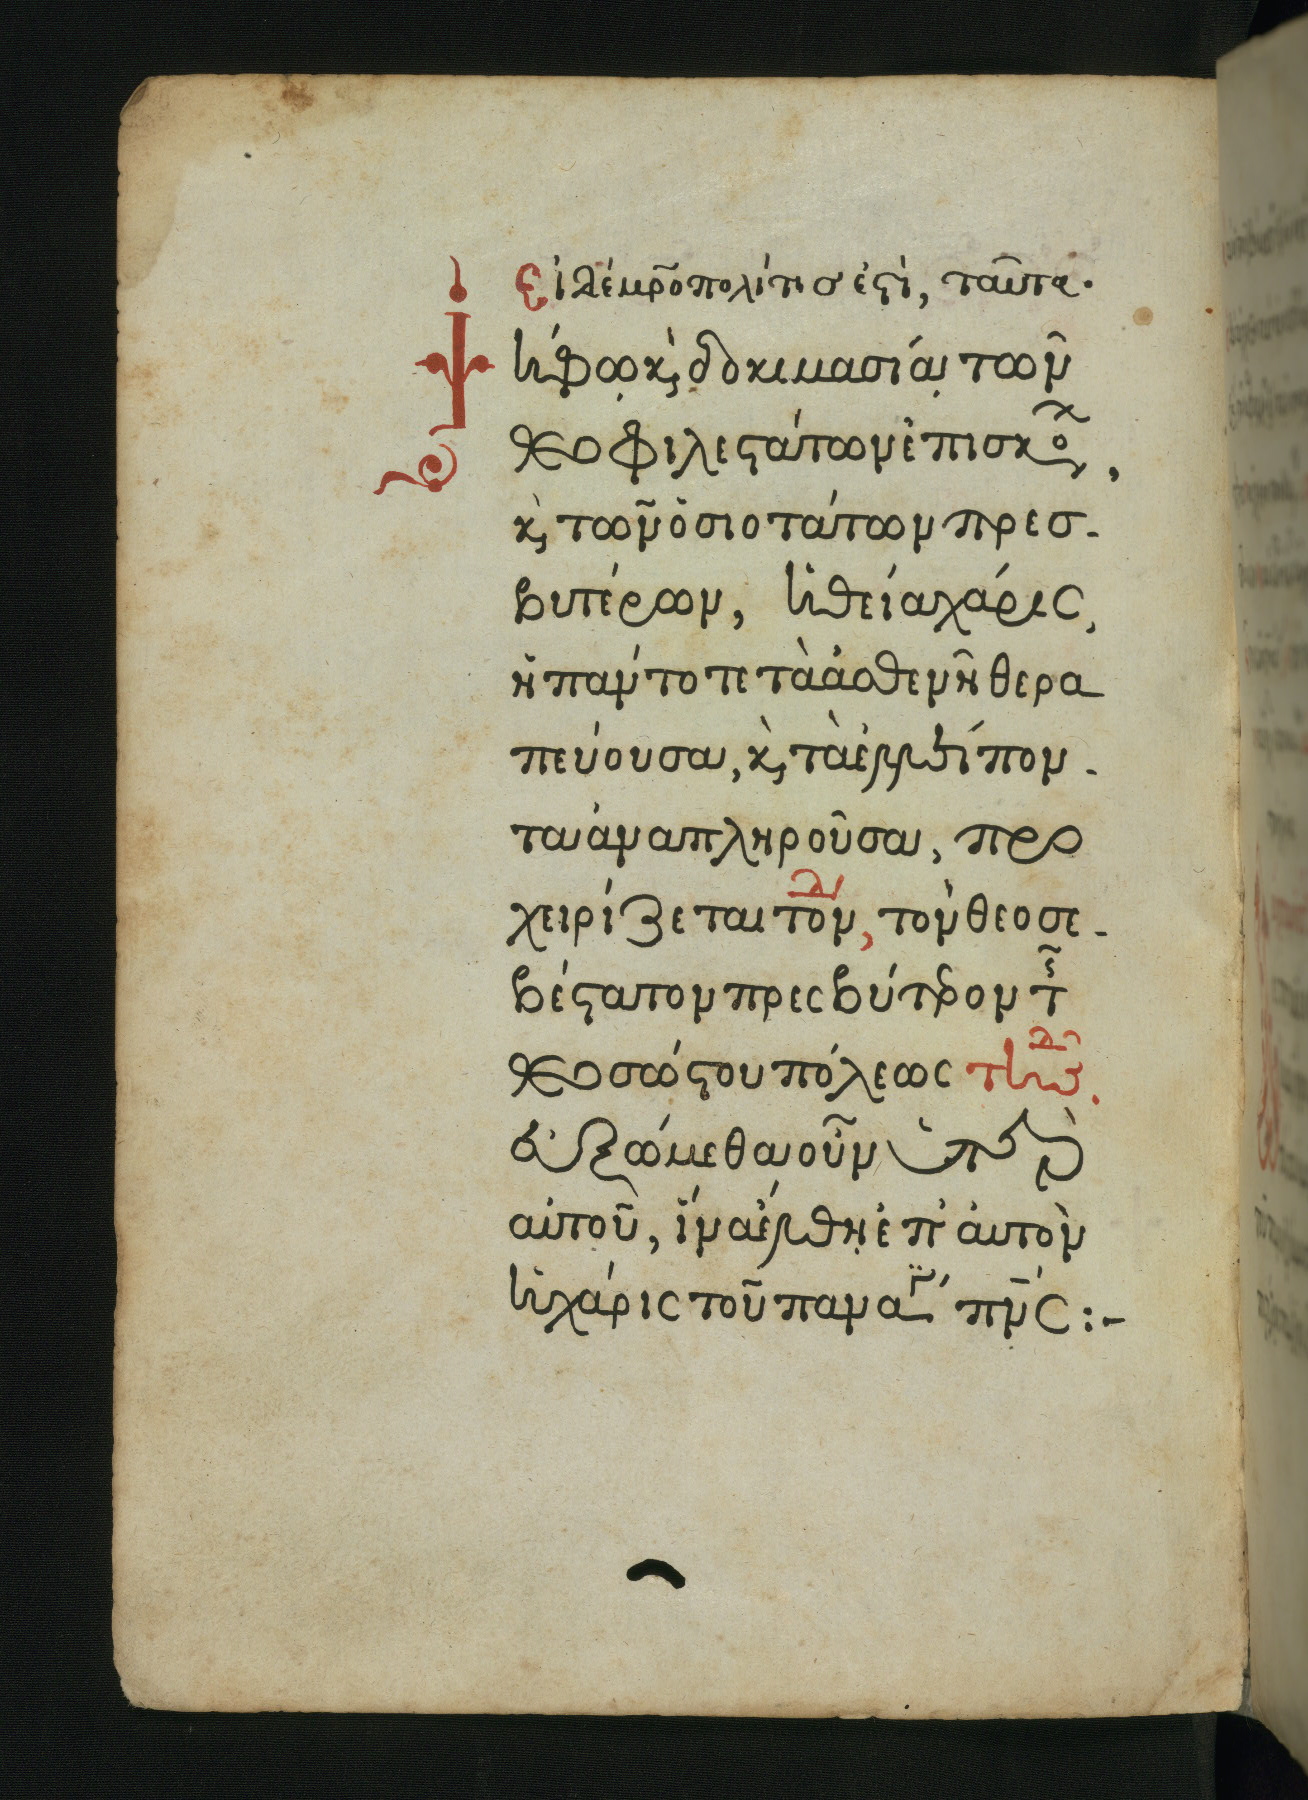 Εἰ δὲ μ̅ρ̅οπολίτησ ἐστὶ, ταῦτα·
Ψήφω κ̀ δοκιμασία τῶν
θεοφιλεστάτων ἐπισκό,
κ̀ τῶν ὁσιοτάτων πρεσ-
βυτέρων, ἡ θεία χάρις,
ἡ πάντοτε τὰ ἀσθενῆ θερα
πεύουσα, κ̀ τὰ ἐλλείπον-
τα ἀναπληροῦσα, προ
χειρίζεται τὸν δ, τὸν θεοσε-
βέστατον πρεσβύτερον τῆς
θεοσώστου πόλεως τῆσδε.
εὐξώμεθα οὖν ὑπὲρ
αὐτοῦ, ἵνα ἔλθη ἐπ' αὐτὸν
ἡ χάρις τοῦ παναγ´ πν̅ς:-